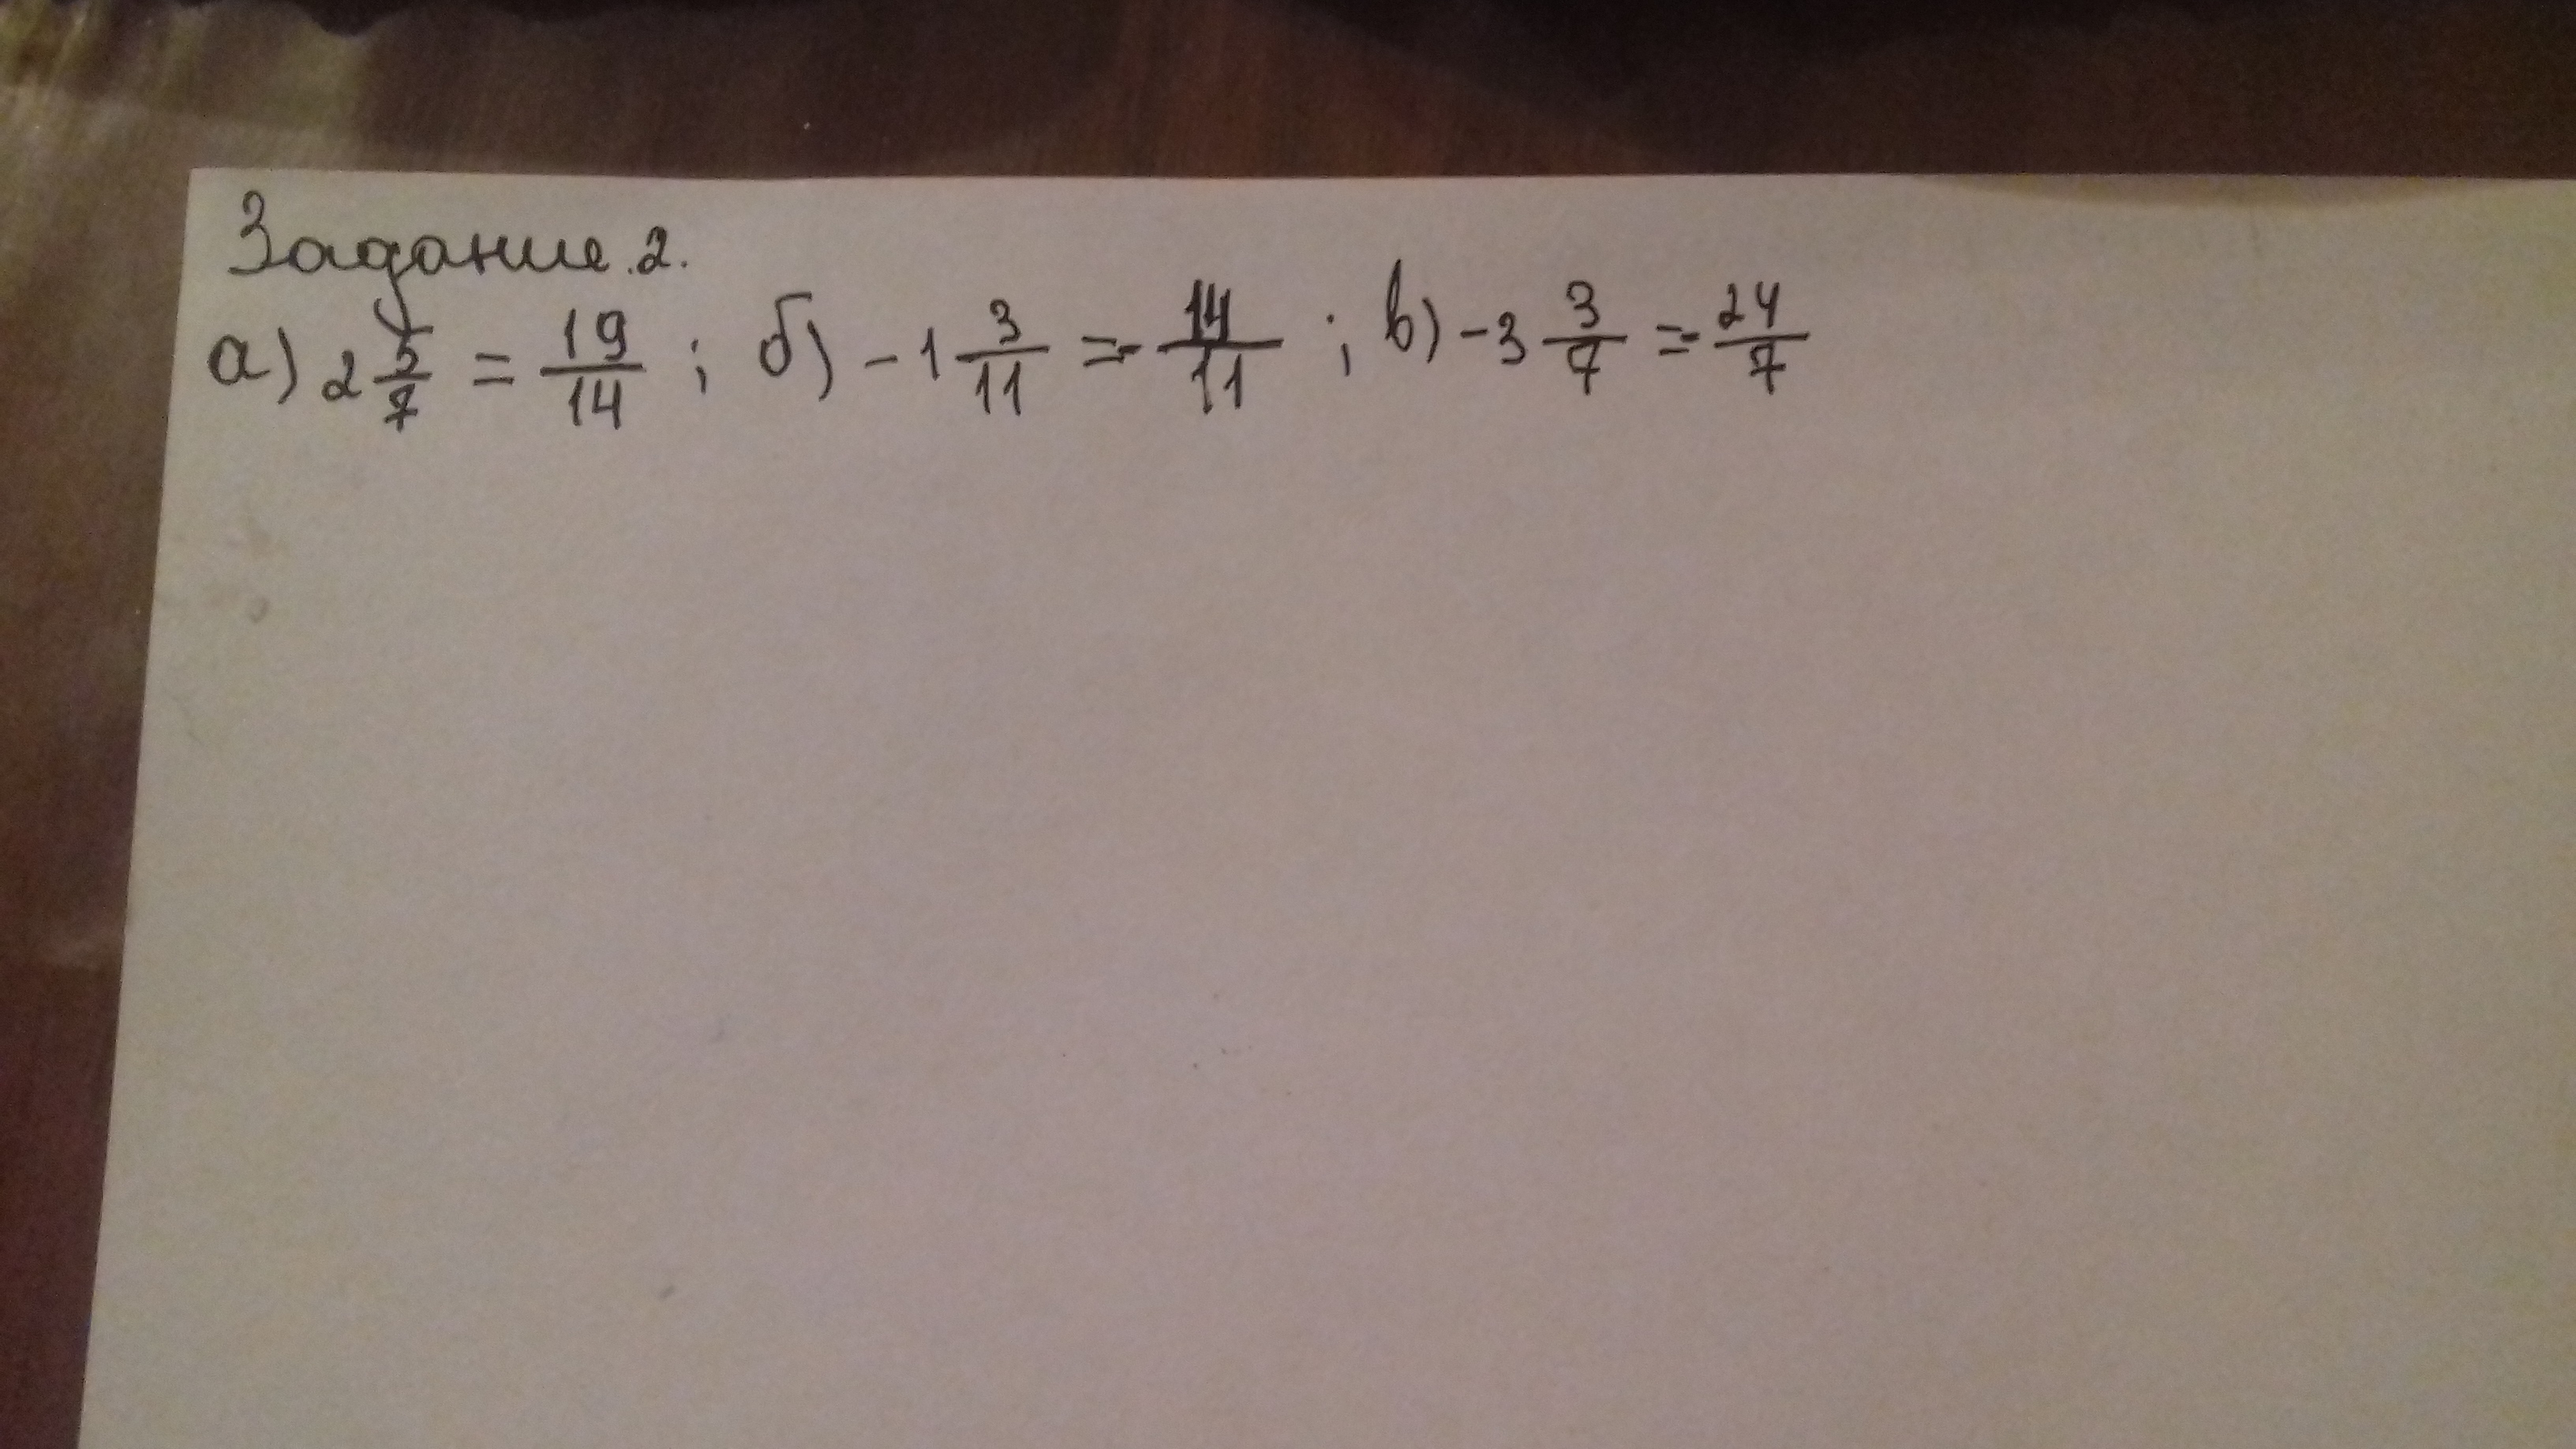 Задание 2.
а) 2 5/7 = 19/14 ; б) -1 3/11 = -14/11 ; в) -3 3/7 = -24/7